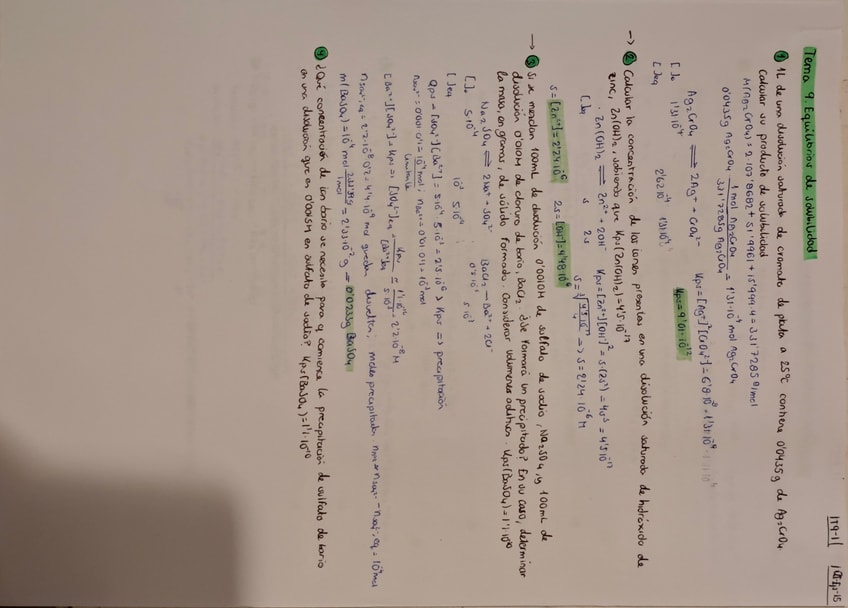 1T9-1( 1QEjs-15
Tema 9. Equilibrios de solubilidad
1 1L de una disolución saturada de cromato de plata a 25ºC contiene 0'0435g de Ag2CrO4
Calcular su producto de solubilidad
M(Ag2CrO4) = 2·107'8682 + 51'9961 + 15'9994·4 = 331'7285 g/mol
0'0435g Ag2CrO4 · 1mol Ag2CrO4 / 331'7285g Ag2CrO4 = 1'31·10^-4 mol Ag2CrO4
Ag2CrO4 ⇌ 2Ag+ + CrO4^2- Kps = [Ag+]^2[CrO4^2-] = 6'8·10^-8 · 1'31·10^-4
[ ]o 1'31·10^-4 Kps = 9'01·10^-12
[ ]eq 2'62·10^-4 1'31·10^-4
→ 2 Calcular la concentración de los iones presentes en una disolución saturada de hidróxido de
zinc, Zn(OH)2, sabiendo que Kps(Zn(OH)2) = 4'5·10^-17
· Zn(OH)2 ⇌ Zn^2+ + 2OH- Kps = [Zn^2+][OH-]^2 = s(2s)^2 = 4s^3 = 4'5·10^-17
[ ]eq s 2s s = ∛(4'5·10^-17/4) => s = 2'24·10^-6 M
s = [Zn^2+] = 2'24·10^-6 2s = [OH-] = 4'48·10^-6
→ 3 Si se mezclan 100mL de disolución 0'0010M de sulfato de sodio, Na2SO4, y 100mL de
disolución 0'010M de cloruro de bario, BaCl2. ¿Se formará un precipitado? En su caso, determinar
la masa, en gramos, de sólido formado. Considerar volúmenes aditivos. Kps(BaSO4) = 1'1·10^-10
Na2SO4 ⇌ 2Na+ + SO4^2- BaCl2 → Ba^2+ + 2Cl-
[ ]o 5·10^-4
[ ]eq 10^-3 5·10^-4 5·10^-3
Qps = [SO4^2-][Ba^2+] = 5·10^-4 · 5·10^-3 = 2'5·10^-6 > Kps => precipitación
nSO4^2- = 0'001·0'1 = 10^-4 mol; nBa^2+ = 0'01·0'1 = 10^-3 mol
Limitante
[Ba^2+][SO4^2-] = Kps => [SO4^2-]eq = Kps / [Ba^2+]eq = 1'1·10^-10 / 5·10^-3 = 2'2·10^-8 M
nSO4^2-,eq = 2'2·10^-8 · 0'2 = 4'4·10^-9 mol quedan disueltos; moles precipitados = nSO4^2- - nSO4^2-,eq = 10^-4 mol
m(BaSO4) = 10^-4 mol · 233'38g / 1mol = 2'33·10^-2 g → 0'0233g BaSO4
4 ¿Qué concentración de ion bario se necesita para q comience la precipitación de sulfato de bario
en una disolución que es 0'0015M en sulfato de sodio? Kps(BaSO4) = 1'1·10^-10